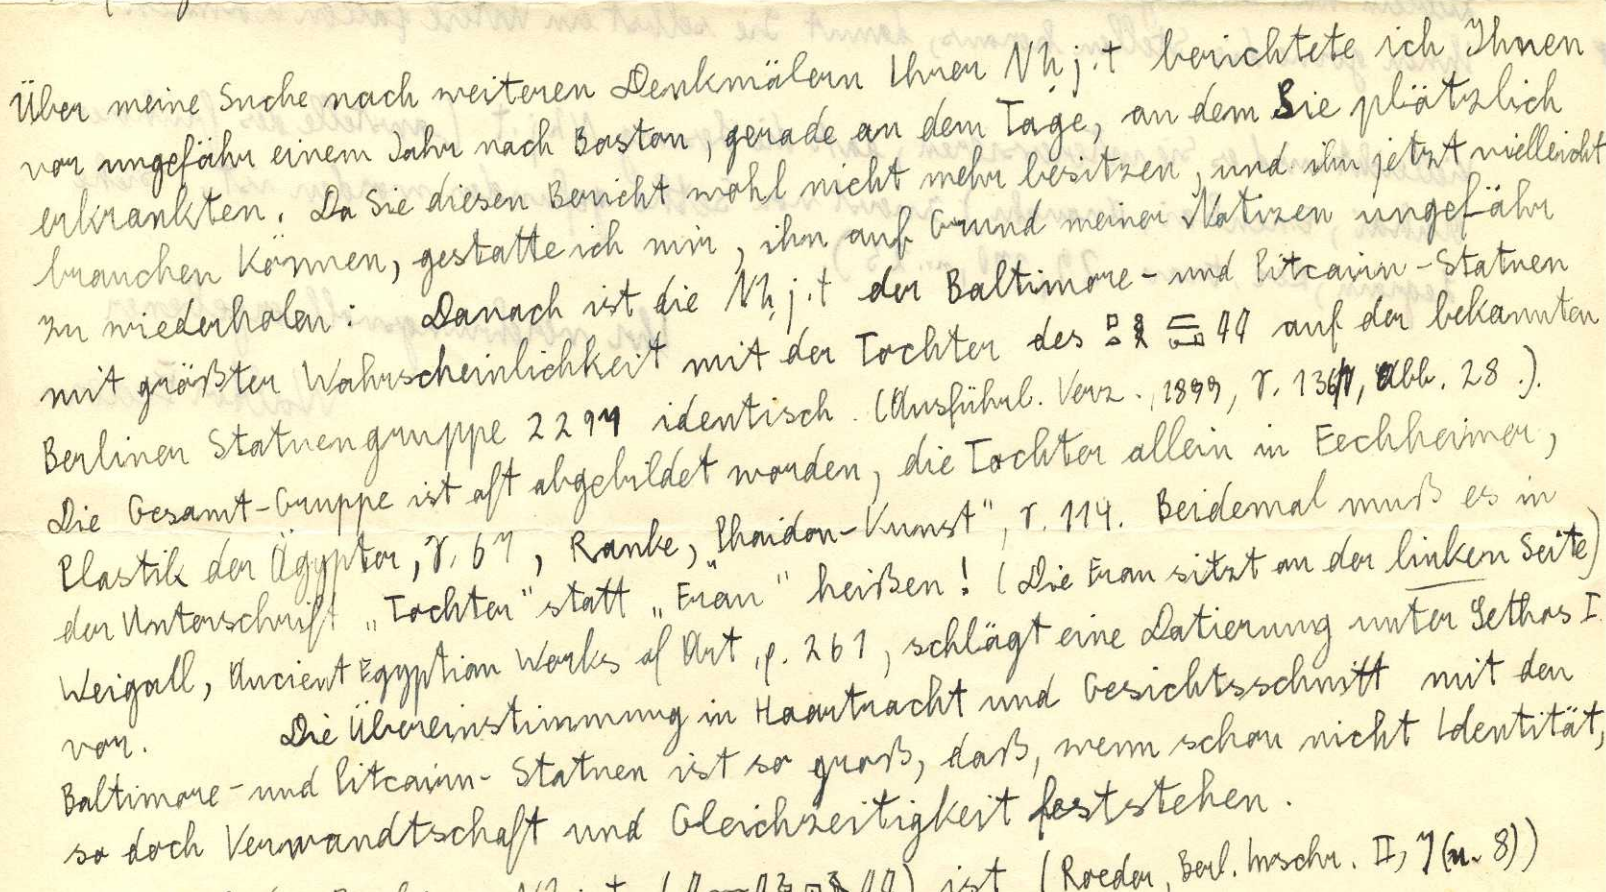 Über meine Suche nach weiteren Denkmälern Ihrer Nḥj.t berichtete ich Ihnen
vor ungefähr einem Jahr nach Boston, gerade an dem Tage, an dem Sie plötzlich
erkrankten. Da Sie diesen Bericht wohl nicht mehr besitzen, und ihn jetzt vielleicht
brauchen können, gestatte ich mir, ihn auf Grund meiner Notizen ungefähr
zu wiederholen: Danach ist die Nḥj.t der Baltimore- und Pitcairn-Statuen
mit größter Wahrscheinlichkeit mit der Tochter des auf der bekannten
Berliner Statuengruppe 2297 identisch. (Ausführl. Verz., 1899, Abb. 28.).
Die Gesamt-Gruppe ist oft abgebildet worden, die Tochter allein in Fechheimer,
Plastik der Ägypter, S. 67, Ranke, „Phaidon-Kunst", S. 114. Beidemal muß es in
der Unterschrift „Tochter" statt „Frau" heißen! (Die Frau sitzt an der linken Seite)
Weigall, Ancient Egyptian Works of Art, p. 261, schlägt eine Datierung unter Sethos I.
vor. Die Übereinstimmung in Haartracht und Gesichtsschnitt mit den
Baltimore- und Pitcairn-Statuen ist so groß, daß, wenn schon nicht Identität,
so doch Verwandtschaft und Gleichzeitigkeit feststehen.
ist (Roeder, Berl. Inschr. II, 7 (u. 8))